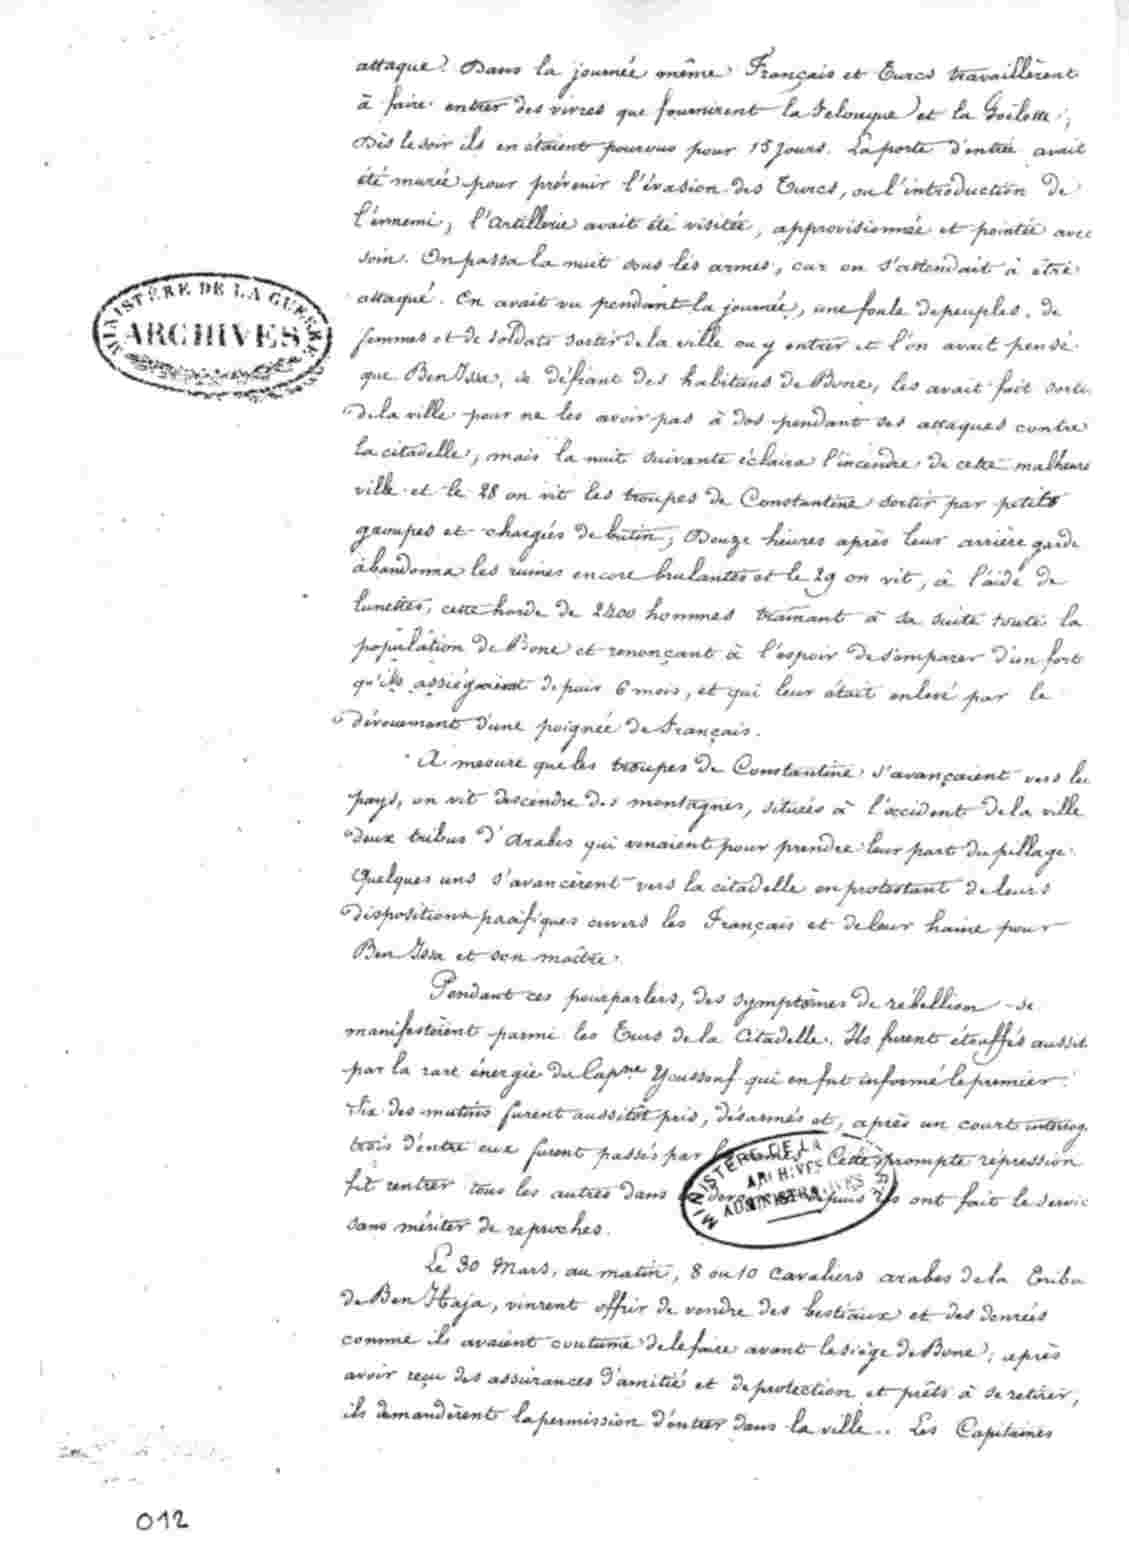 attaque. Dans la journée même Français et Turcs travaillèrent
à faire entrer des vivres que fournirent la felouque et la Goëlette;
Dès le soir ils en étaient pourvus pour 15 jours. La porte d'entrée avait
été murée pour prévenir l'évasion des Turcs, ou l'introduction de
l'ennemi, l'Artillerie avait été visitée, approvisionnée et pointée avec
soin. On passa la nuit sous les armes, car on s'attendait à être
attaqué. On avait vu pendant la journée, une foule de peuples, de
femmes et de soldats sortir de la ville ou y entrer et l'on avait pensé
que Ben Issa, se défiant des habitans de Bone, les avait fait sorti
de la ville pour ne les avoir pas à dos pendant ses attaques contre
la citadelle, mais la nuit suivante éclaira l'incendie de cette malheure
ville et le 28 on vit les troupes de Constantine sortir par petits
groupes et chargés de butin; Douze heures après leur arrière garde
abandonna les ruines encore brulantes et le 29 on vit, à l'aide de
lunettes, cette horde de 2400 hommes traînant à sa suite toute la
population de Bone et renonçant à l'espoir de s'emparer d'un fort
qu'ils assiégeaient depuis 6 mois, et qui leur était enlevé par le
dévouement d'une poignée de Français.
A mesure que les troupes de Constantine s'avançaient vers leu
pays, on vit descendre des montagnes, situées à l'occident de la ville
deux tribus d'Arabes qui venaient pour prendre leur part du pillage.
Quelques uns s'avancèrent vers la citadelle en protestant de leurs
dispositions pacifiques envers les Français et de leur haine pour
Ben Issa et son maître.
Pendant ces pourparlers, des symptômes de rébellion se
manifestèrent parmi les Turcs de la Citadelle. Ils furent étouffés aussit
par la rare énergie du Capne Youssouf qui en fut informé le premier.
Six des mutins furent aussitôt pris, désarmés et, après un court interrog
trois d'entre eux furent passés par les armes. Cette prompte répression
fit rentrer tous les autres dans le devoir depuis ils ont fait le servic
sans mériter de reproches.
Le 30 Mars, au matin, 8 ou 10 Cavaliers arabes de la Tribu
de Ben Haja, vinrent offrir de vendre des bestiaux et des denrées
comme ils avaient coutume de le faire avant le siège de Bone; après
avoir reçu des assurances d'amitié et de protection et prêts à se retirer,
ils demandèrent la permission d'entrer dans la ville.. Les Capitaines
MINISTÈRE DE LA GUERRE
ARCHIVES
MINISTÈRE DE LA
ARCHIVES
ADMINISTRATIVES
012